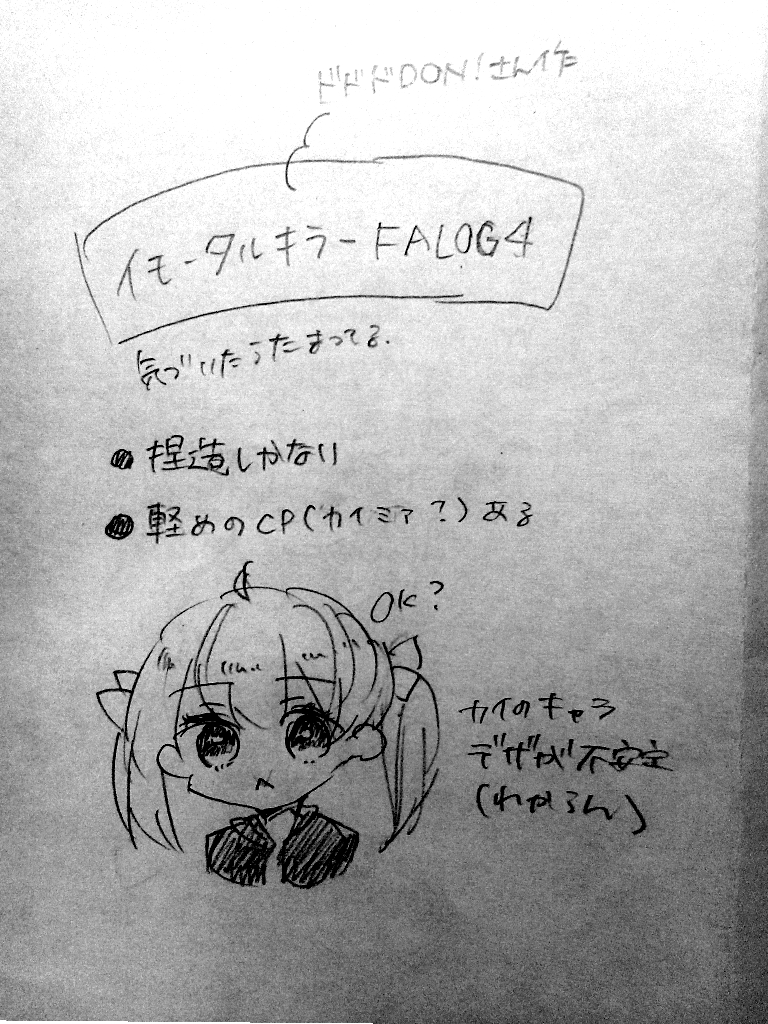 ドドドDON!さん作
イモータルキラーFALOG4
気づいたらたまってる.
捏造しかない
軽めのCP(カイミア?)ある
OK?
カイのキャラ
デザが不安定
(わからん)